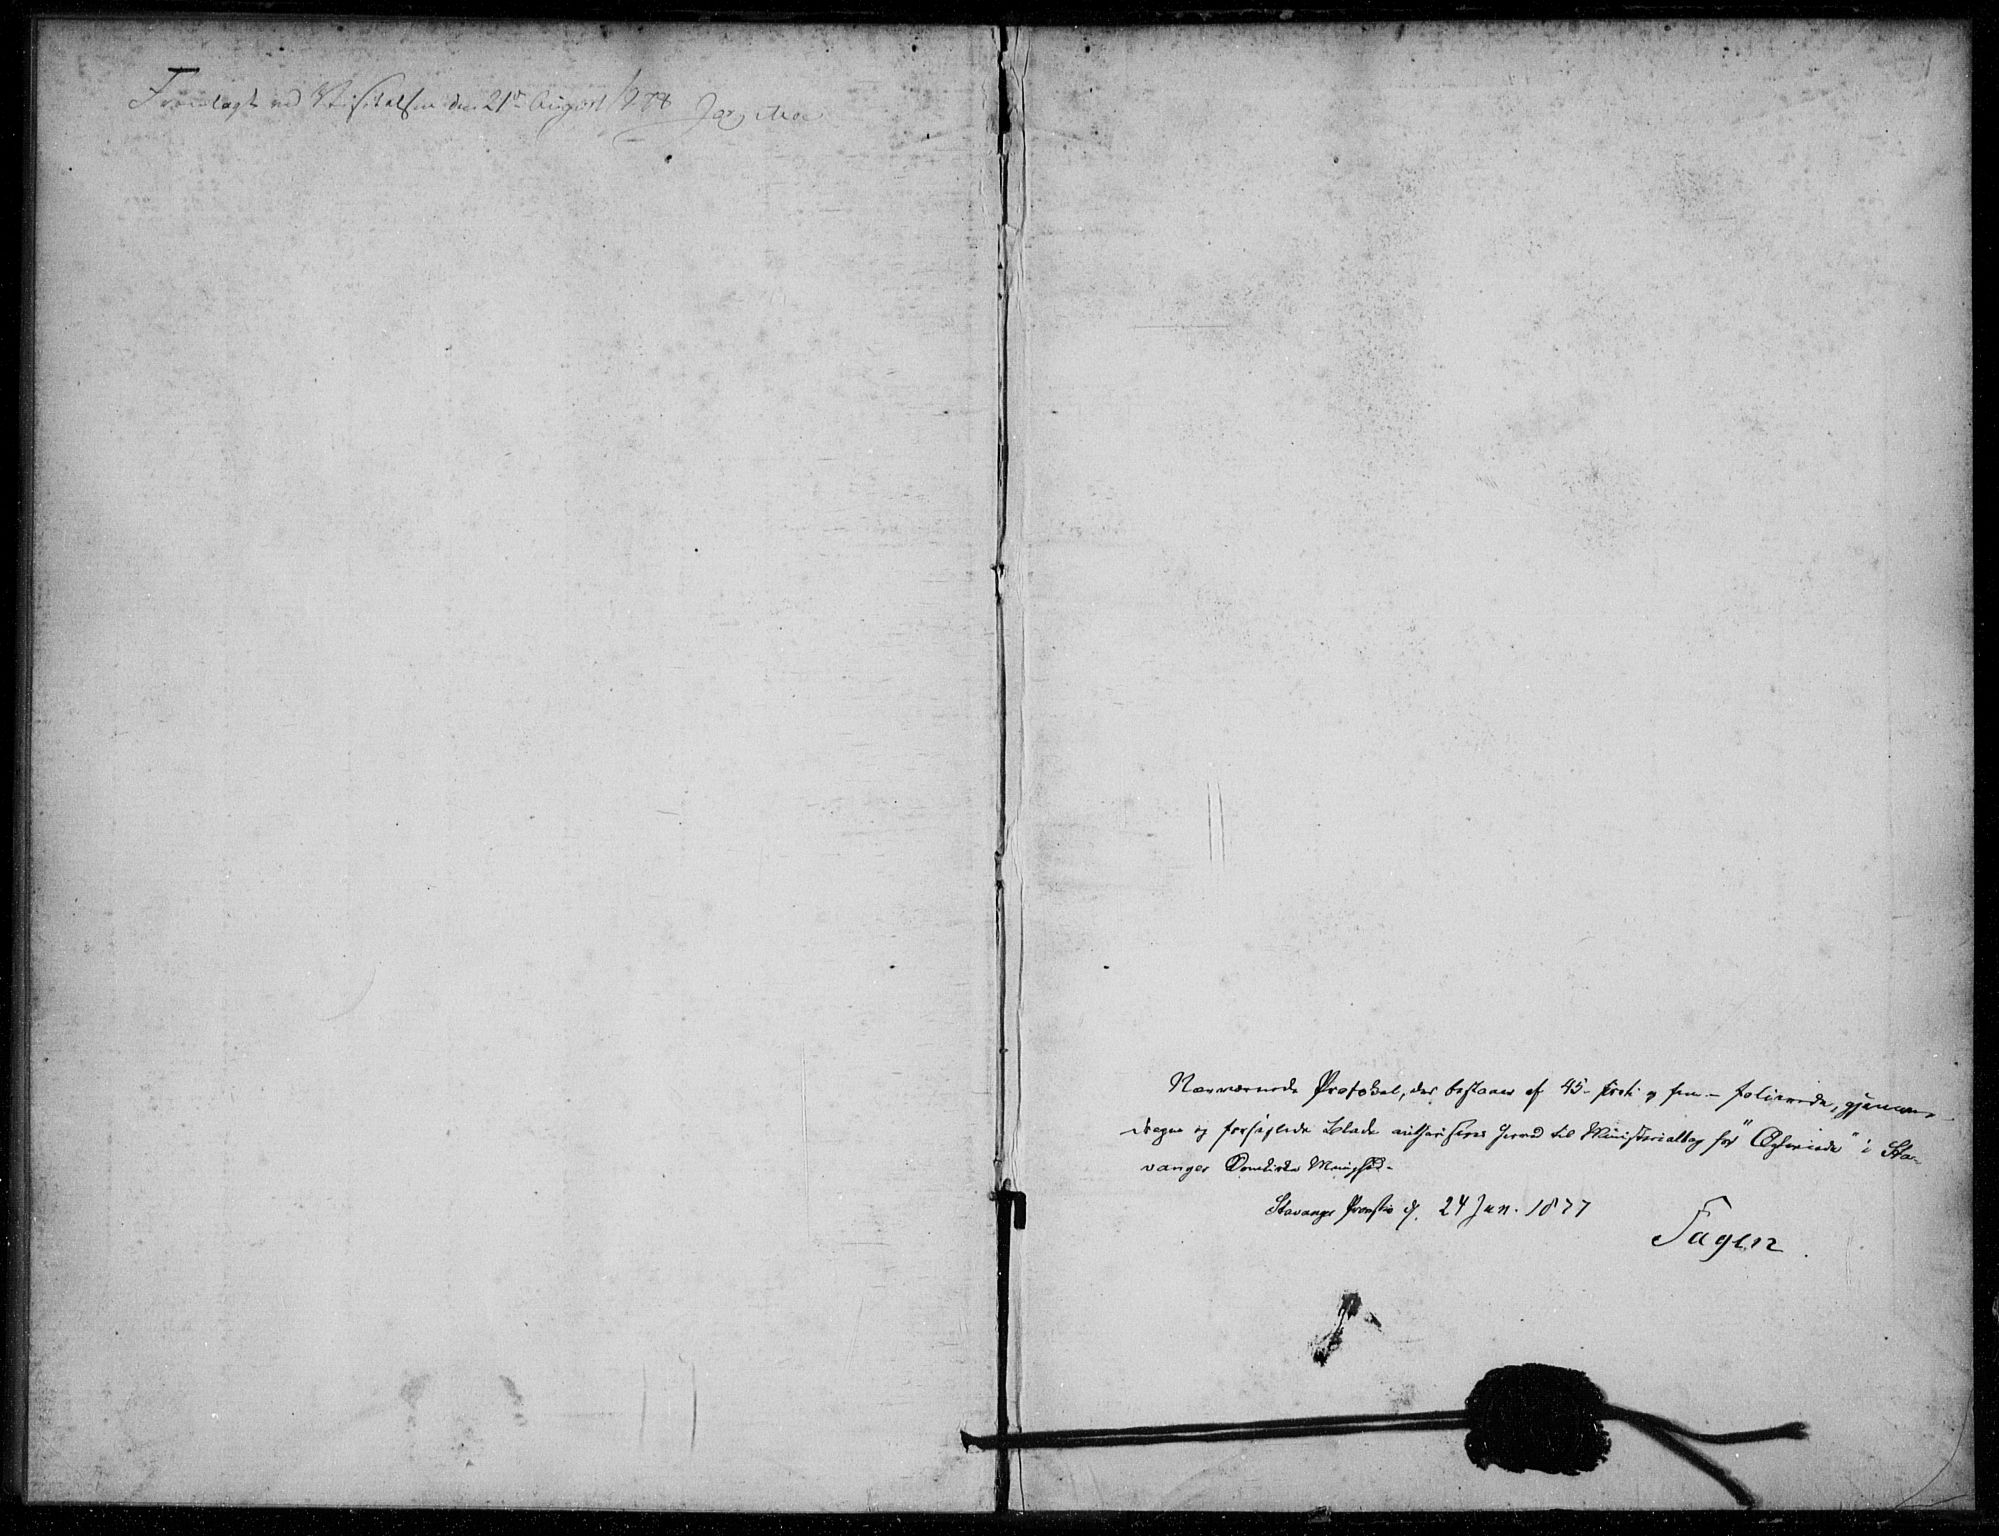 Fremlagt ved Visitatsen den 21de August 1878 Jørg. Moe
Nærværende Protokol, der bestaaer af 45 - førti og fem - folierede, gjennem-
dragne og forseglede Blade authoriseres herved til Ministerialbog for i Sta-
vanger Domkirke Menighed.
Stavanger Provsti d. 24 Jan. 1877